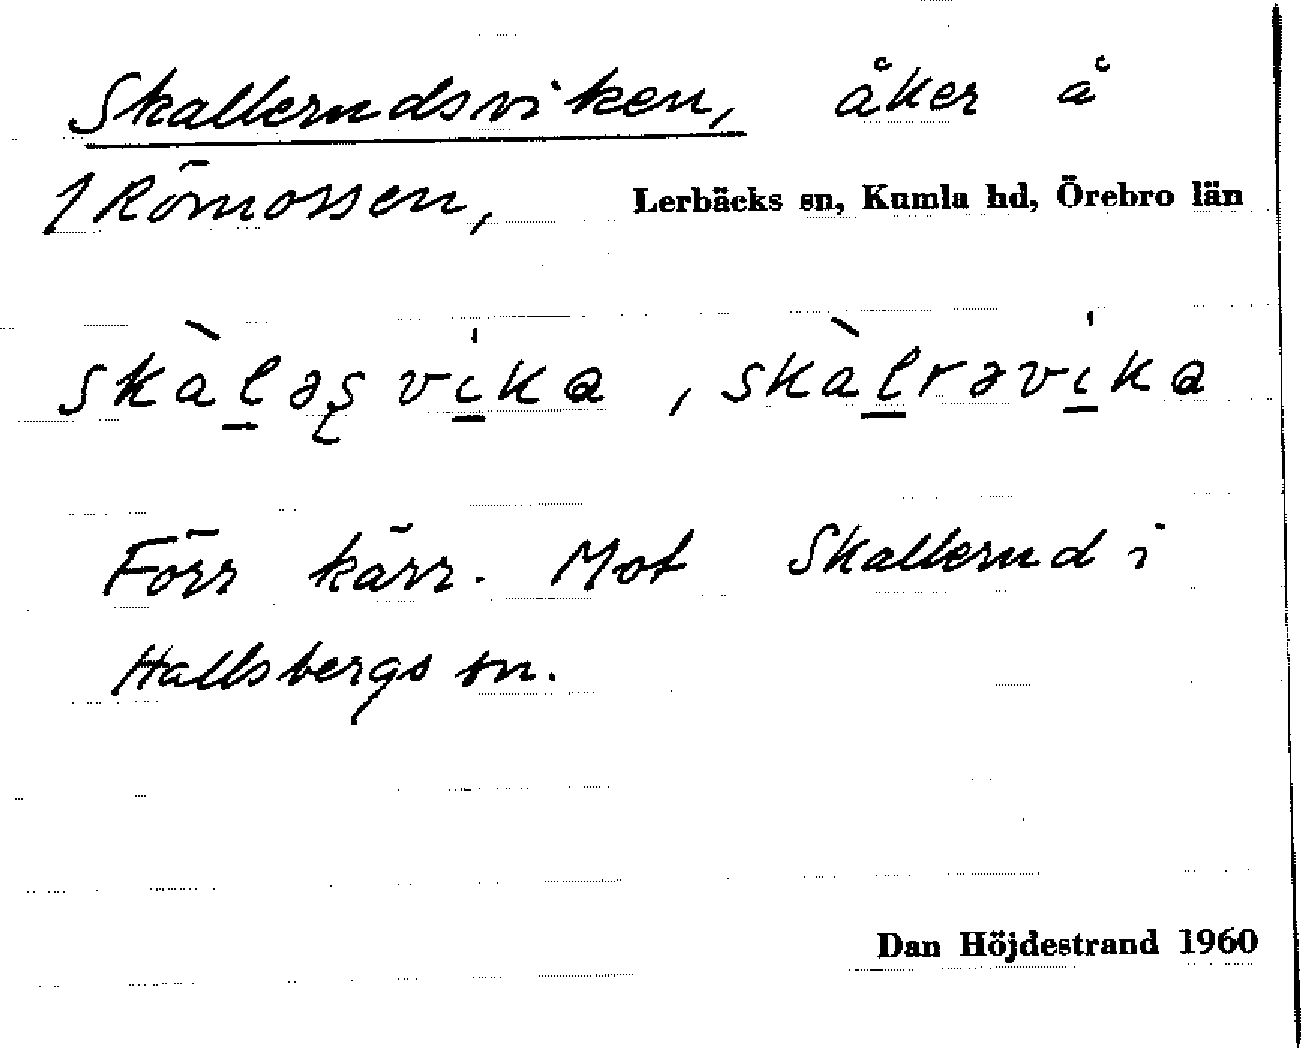 Skallerudsviken, åker å
1 Römossen, Lerbäcks sn, Kumla hd, Örebro län
skàl̲əʂvi̲ka, skàl̲rəvi̲ka
Förr kärr. Mot Skallerud i
Hallsbergs sn.
Dan Höjdestrand 1960